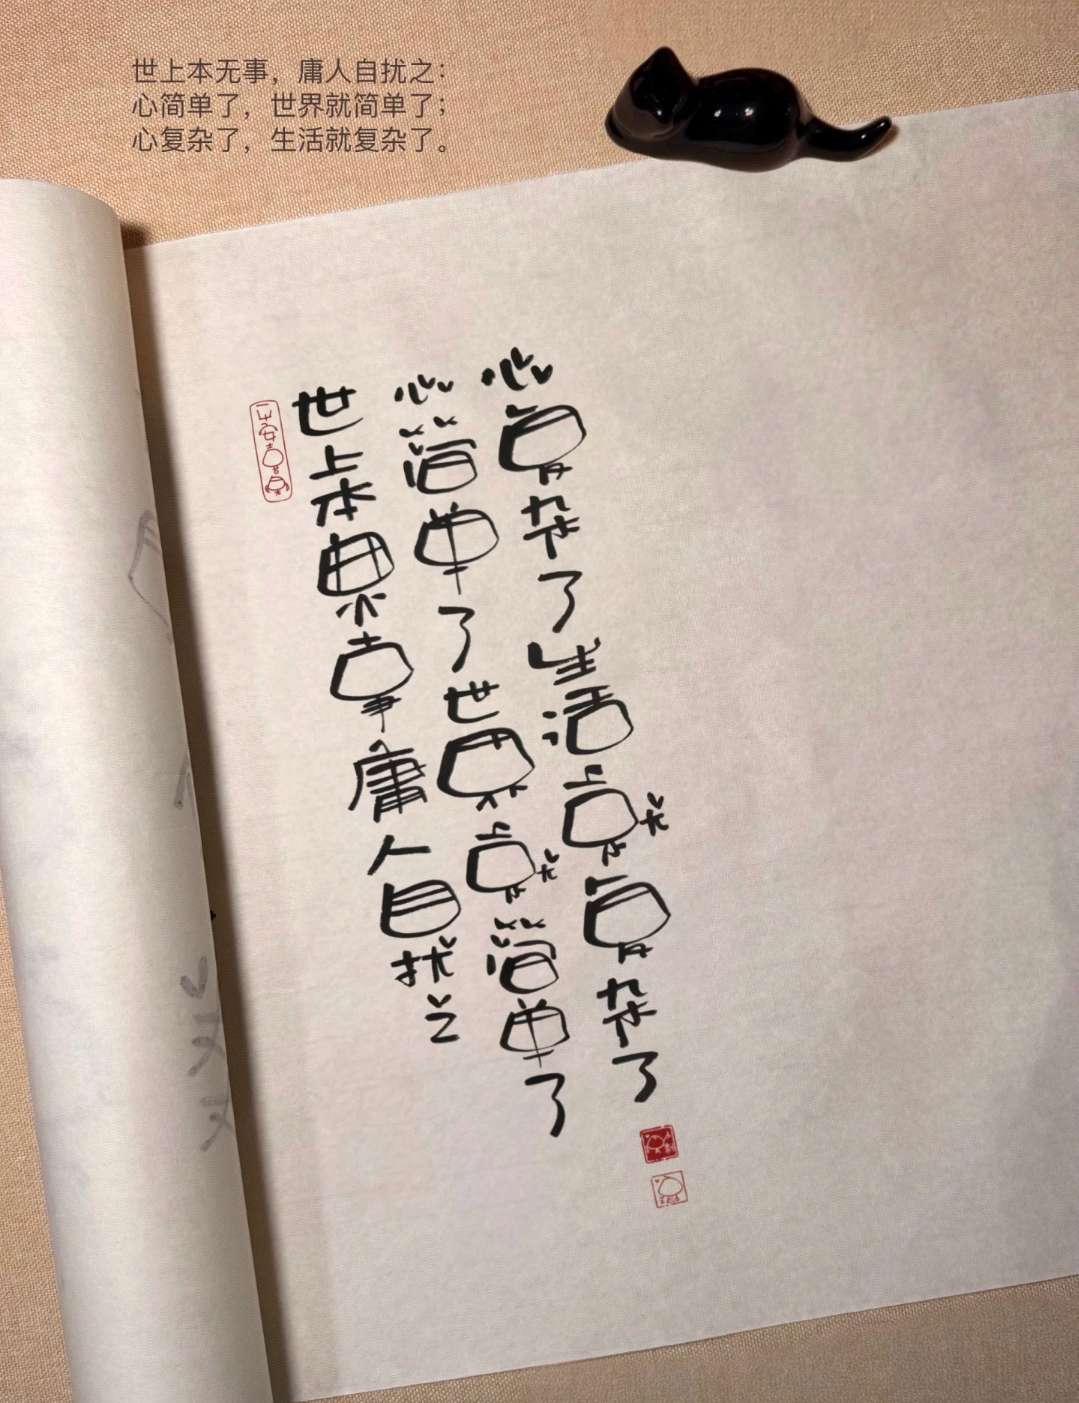 世上本无事，庸人自扰之：
心简单了，世界就简单了；
心复杂了，生活就复杂了。
世上本无事庸人自扰之
心简单了世界就简单了
心复杂了生活就复杂了